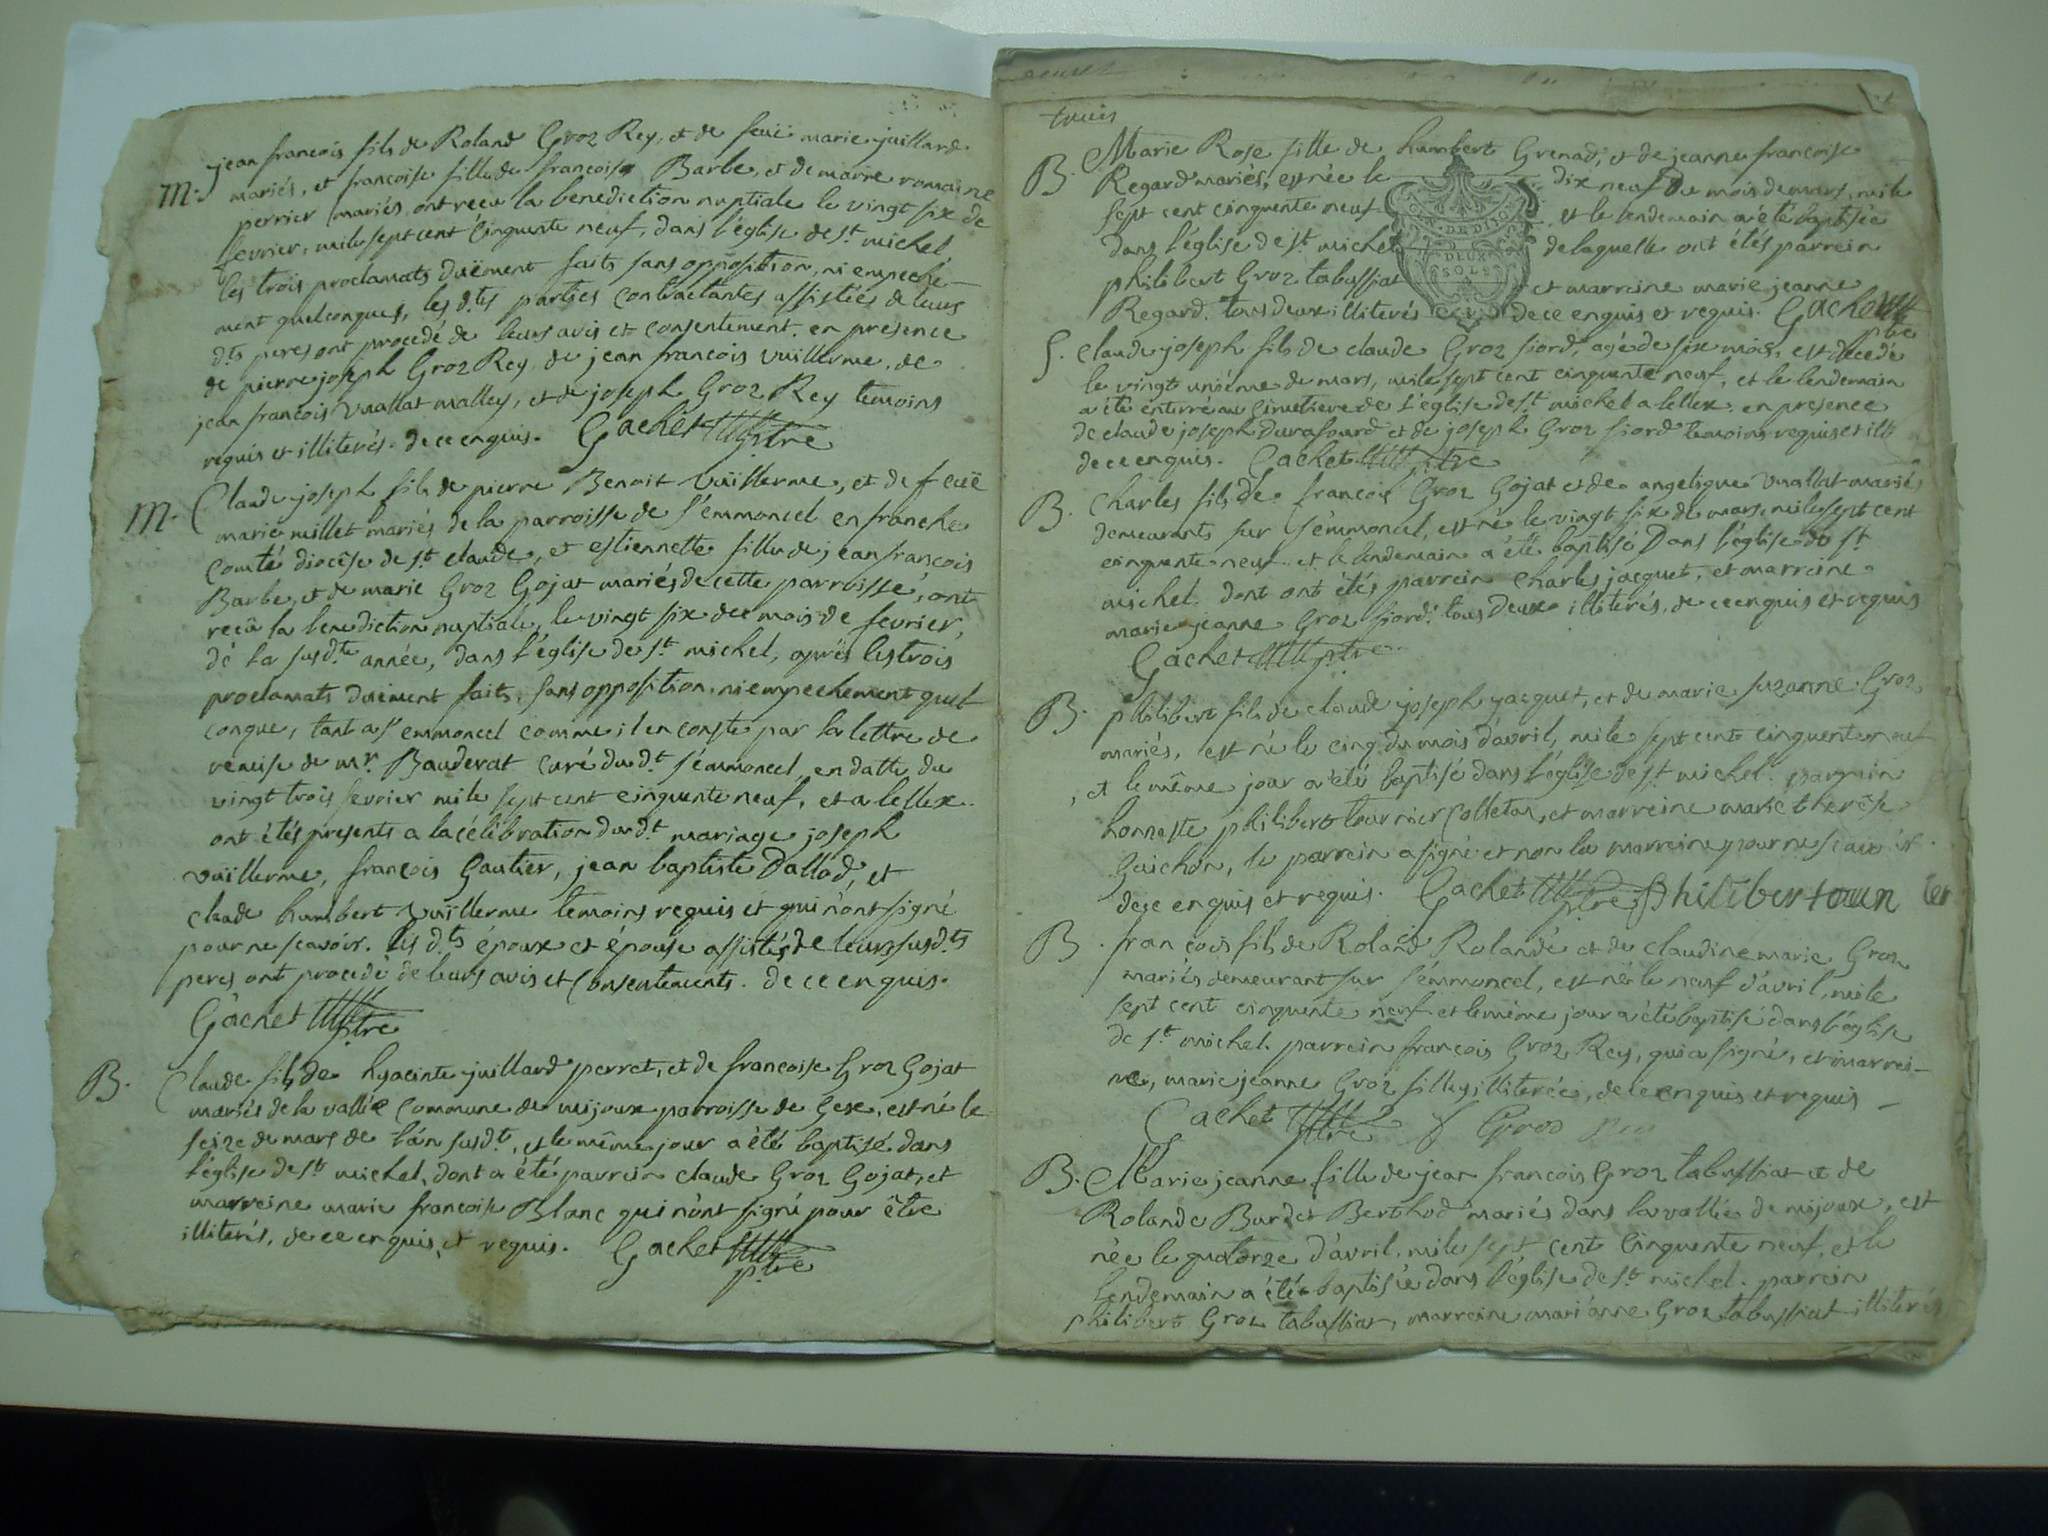 M. jean francois fils de Roland Groz Rey, et de feüe marie juillard
mariés, et francoise fille de francoise Barbe, et de marie romaine
perrier mariés, ont reçu la benediction nuptiale le vingt six de
fevrier, mile sept cent cinquente neuf, dans l'église de st. michel,
les trois proclamats duëment faits sans opposition, ni empeche-
ment quelconques, les d.ts parties contractantes assistées de leurs
d.ts peres ont procedé de leurs avis et consentement. en presence
de pierre joseph Groz Rey, de jean francois vuillerme, de
jean francois vuallat malley, et de joseph Groz Rey temoins
requis et illiterés. de ce enquis. Gachet ptre
M. Claude joseph fils de pierre Benoit vuillerme, et de feüe
marie millet mariés de la parroisse de s'emmoncel en franche
comté diocêse de st. claude, et estiennette fille de jean francois
Barbe, et de marie Groz Gojat mariés de cette parroisse, ont
reçû la benediction nuptiale, le vingt six de mois de fevrier,
de la susd.te année, dans l'église de st. michel, après les trois
proclamats duëment faits, sans opposition, ni empechement quel
conque, tant a s'emmoncel comme il en conste par la lettre de
remise de mr. Bauderat curé dud.t s'emmoncel, en datte du
vingt trois fevrier mile sept cent cinquente neuf, et a lellex.
ont étés presents a la célébration dud.t mariage joseph
vuillerme, françois Gautier, jean baptiste Dallod, et
claude humbert vuillerme temoins requis et qui n'ont signé
pour ne scavoir. les d.ts époux et épouse assistés de leurs susd.ts
peres ont procedé de leurs avis et consentements. de ce enquis.
Gachet ptre
B. Claude fils de hyacinte juillard perret, et de francoise Groz Gojat
mariés de la vallée commune de mijoux parroisse de Gex, est né le
seize de mars de l'an susd.t, et le même jour a été baptisé dans
l'église de st. michel, dont a été parrein claude Groz Gojat, et
marreine marie francoise Blanc qui n'ont signé pour être
illiterés, de ce enquis et requis. Gachet ptre
trois
B. Marie Rose fille de humbert Grenad, et de jeanne francoise
Regard mariés, est née le dix neuf du mois de mars, mile
sept cent cinquente neuf et le lendemain a été baptisée
dans l'église de st. michel de laquelle ont étés parrein
philibert Groz tabussiat et marreine marie jeanne
Regard. tous deux illiterés de ce enquis et requis. Gachet
ptre
DEUX
SOLS
S. Claude joseph fils de claude Groz fiord, agé de six mois, est decedé
le vingt uniéme de mars, mile sept cent cinquente neuf, et le lendemain
a été enterré au cimetiere de l'église de st. michel a lellex. en presence
de claude joseph Durafourd et de joseph Groz fiord temoins requis et ill
de ce enquis. Gachet ptre
B. Charles fils de francois Groz Gojat et de angelique vuallat mariés
demeurants sur s'emmoncel, est né le vingt six de mars, mile sept cent
cinquente neuf et le lendemain a été baptisé Dans l'église de st.
michel. dont ont étés parrein charles jacquet, et marreine
marie jeanne Groz fiord. tous deux illiterés, de ce enquis et requis
Gachet ptre
B. philibert fils de claude joseph jacquet, et de marie suzanne Groz
mariés, est né le cinq du mois d'avril, mile sept cent cinquente neuf
, et le même jour a été baptisé dans l'église de st. michel. parrein
honneste philibert tournier et marreine marie therèse
Guichon, le parrein a signé et non la marreine pour ne scavoir
de ce enquis et requis. Gachet ptre philibert
B. francois fils de Roland Rolandé et de claudine marie Groz
mariés demeurant sur s'emmoncel, est né le neuf d'avril, mile
sept cent cinquente neuf et le même jour a été baptisé dans l'église
de st. michel. parrein francois Groz Rey, qui a signé, et marrei-
ne, marie jeanne Groz illiterée, de ce enquis et requis
Gachet ptre f Groz
B. Marie jeanne fille de jean francois Groz tabussiat et de
Rolande Burdet Berthod mariés dans la vallée de mijoux, est
née le quatorze d'avril, mile sept cent cinquente neuf, et le
lendemain a été baptisée dans l'église de st. michel. parrein
philibert Groz tabussiat, marreine marianne Groz tabussiat illiterés